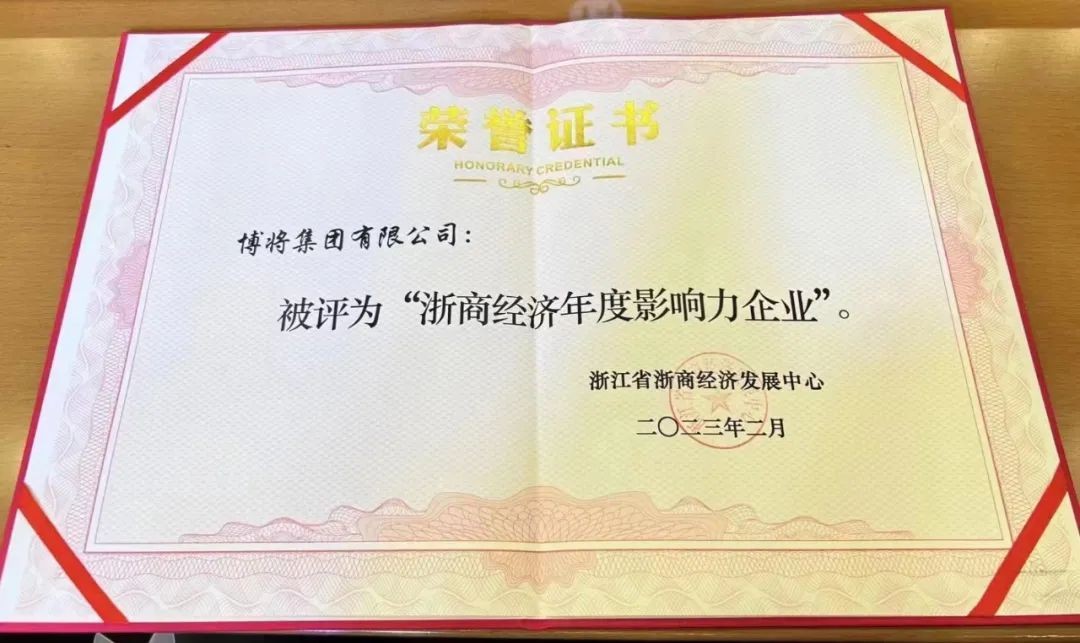 荣誉证书
HONORARY CREDENTIAL
博将集团有限公司：
被评为“浙商经济年度影响力企业”。
浙江省浙商经济发展中心
二〇二三年二月